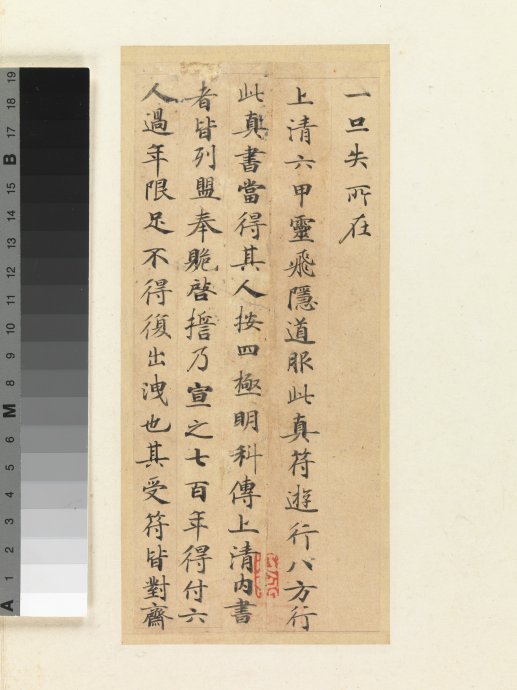 一旦失所在
上清六甲靈飛隱道服此真符遊行八方行
此真書當得其人按四極明科傳上清內書
者皆列盟奉貺啓誓乃宣之七百年得付六
人過年限足不得復出洩也其受符皆對齋
19
18
17
B
15
14
13
12
11
10
9
8
M
6
5
4
3
2
1
A